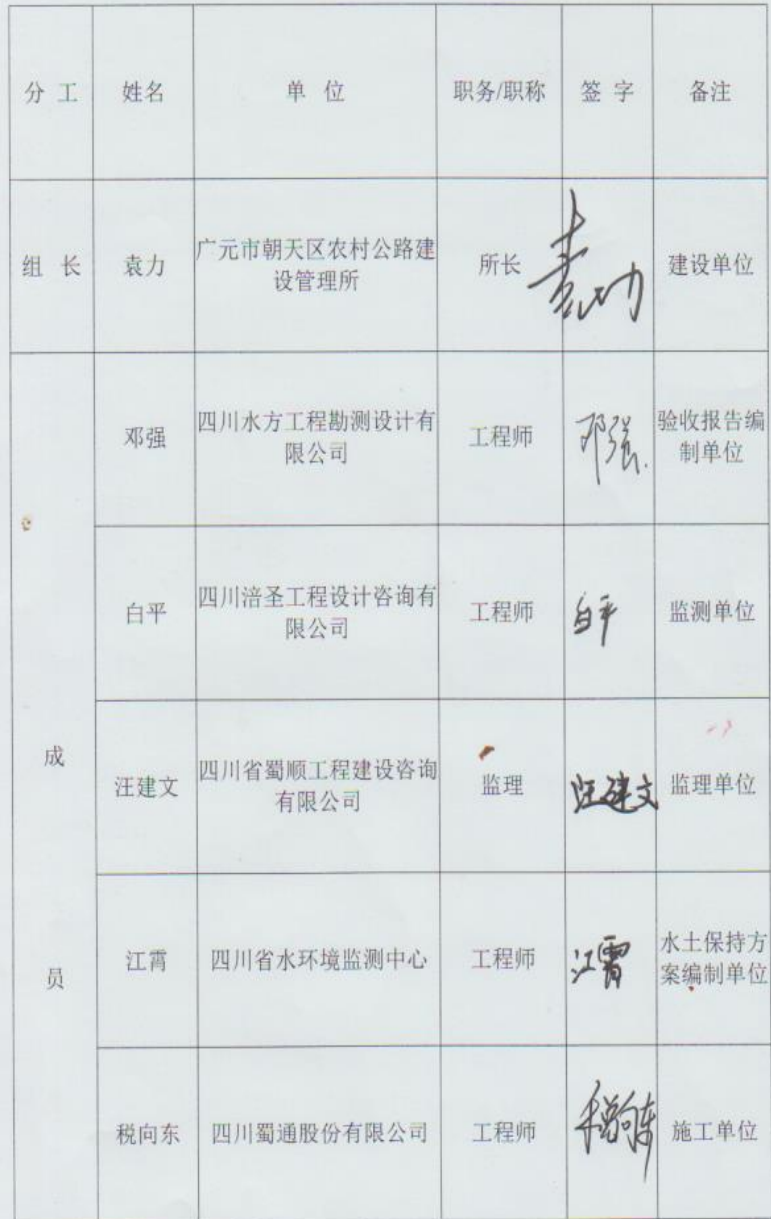 分 工 姓名 单 位 职务/职称 签 字 备注
组 长 袁力 广元市朝天区农村公路建 所长 袁力 建设单位
设管理所
成 员
邓强 四川水方工程勘测设计有 工程师 邓强 验收报告编
限公司 制单位
白平 四川涪圣工程设计咨询有 工程师 白平 监测单位
限公司
汪建文 四川省蜀顺工程建设咨询 监理 汪建文 监理单位
有限公司
江霄 四川省水环境监测中心 工程师 江霄 水土保持方
案编制单位
税向东 四川蜀通股份有限公司 工程师 税向东 施工单位